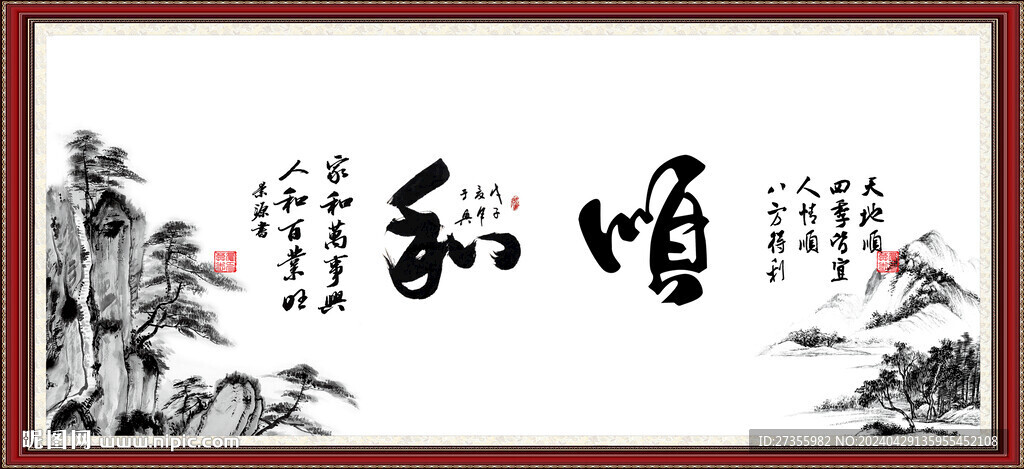 天地順
四季皆宜
人情順
八方得利
順
和
戊子
于典
家和萬事興
人和百業旺
景源書
昵图网 www.nipic.com
ID:27355982 NO:20240429135955452108